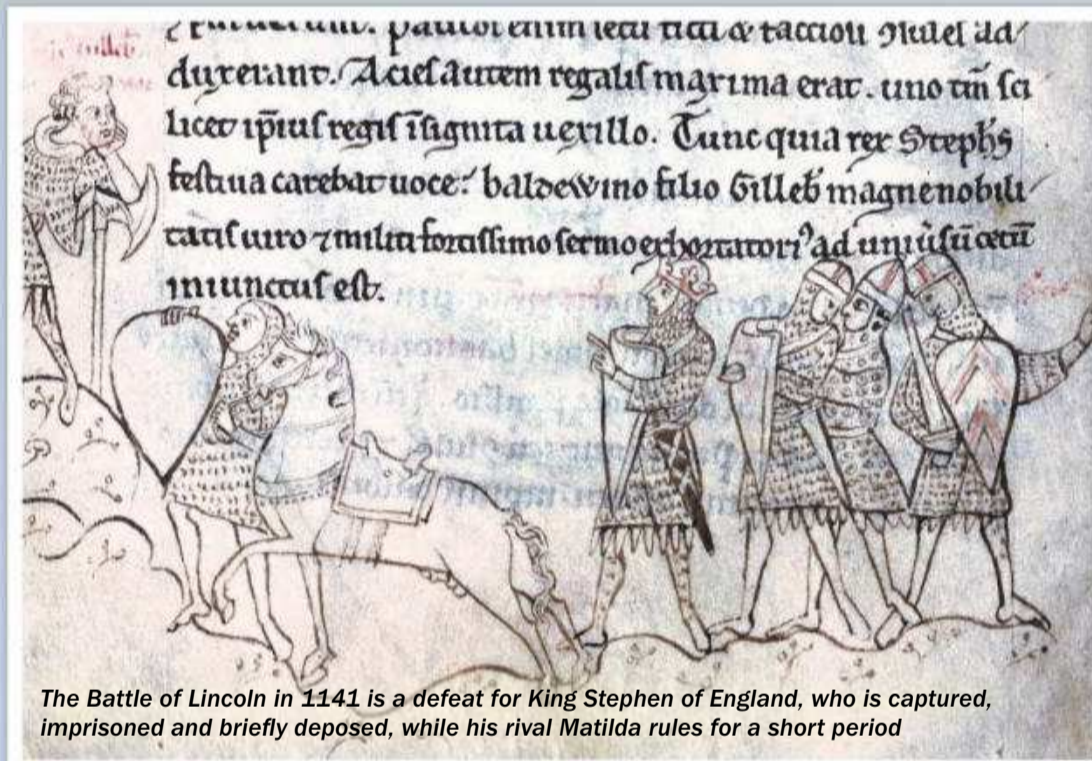 enim ſecū ficti & factioſi ꝯſuleſ ad
duxerant. Acieſ autem regaliſ maxima erat. uno tm̄ ſci
licet ip̄iuſ regiſ īſignita uexillo. Tunc quia rex Stephs
feſtiua carebat uoce: baldewino filio Gilleb magne nobili
tatiſ uiro ⁊ militi fortiſſimo ſermo exhortatoriꝰ ad uniūſū cetū
iniunctuſ eſt.
The Battle of Lincoln in 1141 is a defeat for King Stephen of England, who is captured,
imprisoned and briefly deposed, while his rival Matilda rules for a short period